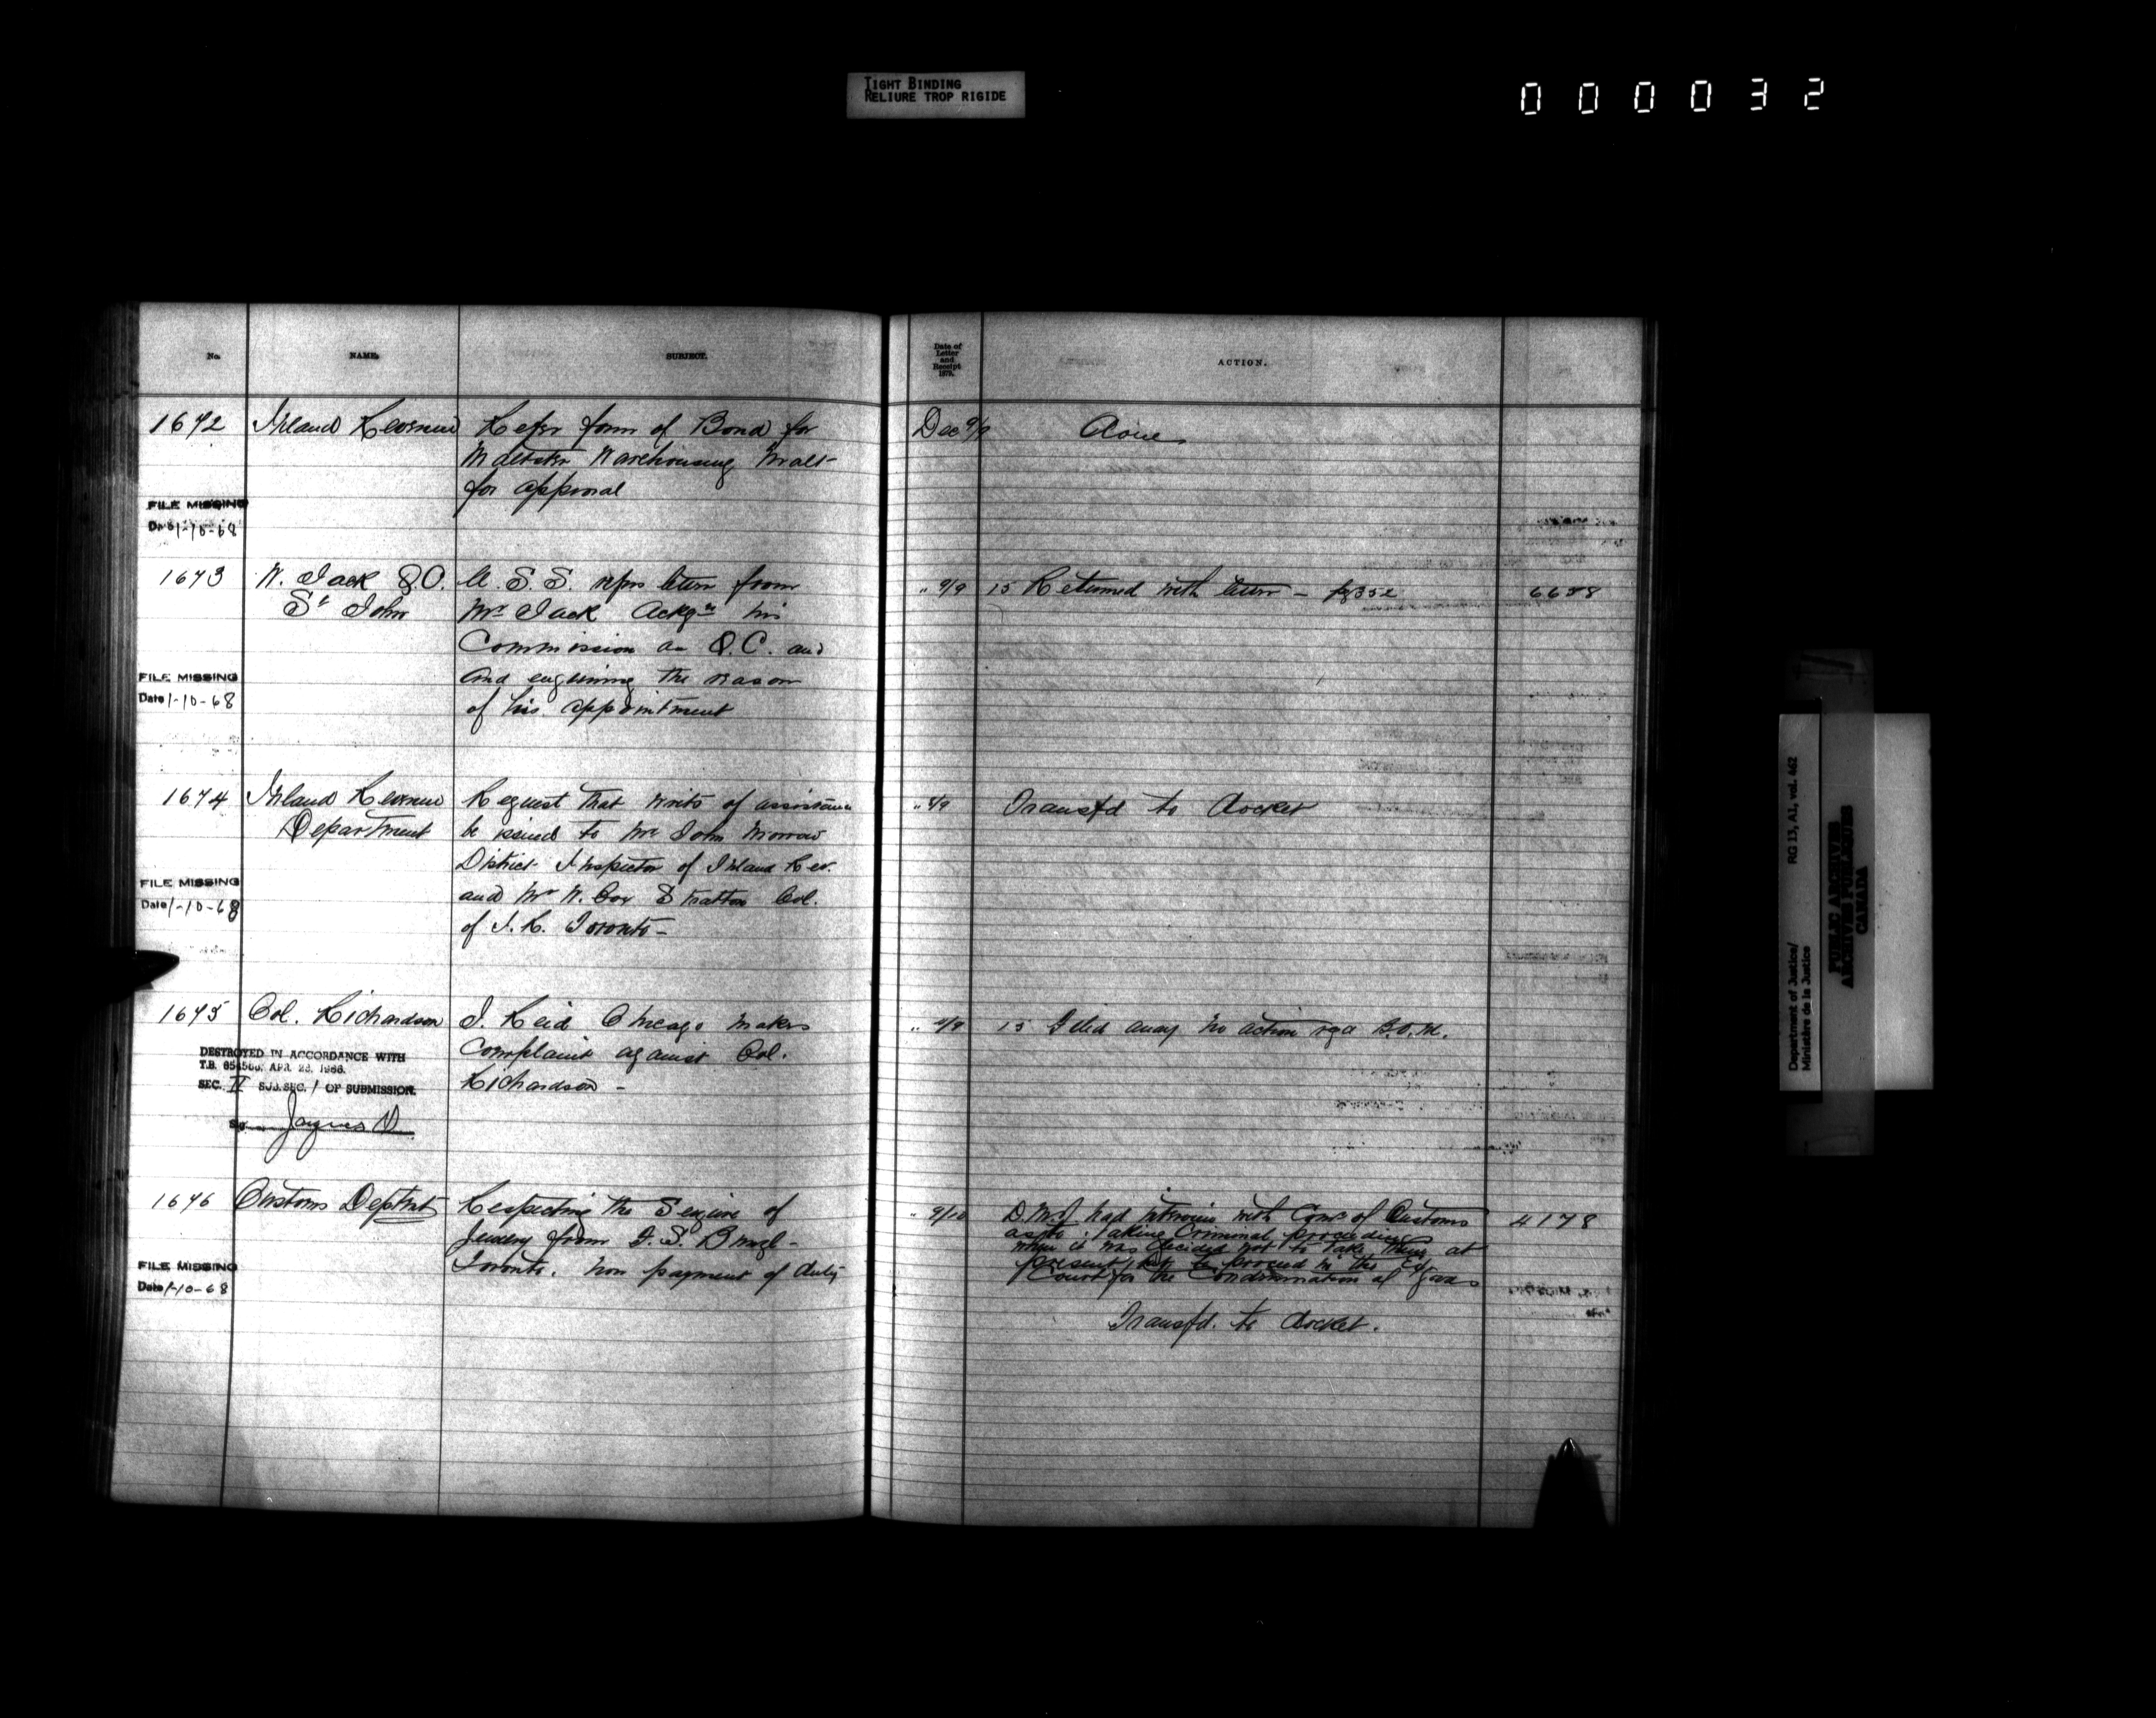 TIGHT BINDING
RELIURE TROP RIGIDE
000032
No.
NAME.
SUBJECT.
Date of
Letter
and
Receipt
1879.
ACTION.
1672
Inland Revenue
Refer form of Bond for
Maltster Warehousing Malt
for approval
Dec 9/9
Done
FILE MISSING
Date 1-10-68
1673
W. Jack Q.C.
St John
U. S. S. refers letter from
Mr Jack Ackg his
Commission as Q.C. and
and enquiring the reason
of his appointment
" 9/9
15 Returned with letter - pg 352
6658
FILE MISSING
Date 1-10-68
1674
Inland Revenue
Department
Request that writs of assistance
be issued to Mr John Morrow
District Inspector of Inland Rev.
and Mr W. Cox Stratton Col.
of I. R. Toronto -
Transfd to Docket
FILE MISSING
Date 1-10-68
1675
Col. Richardson
J. Reid Chicago makes
Complaint against Col.
Richardson -
15 Filed away no action
DESTROYED IN ACCORDANCE WITH
SEC. II SUB.SEC. 1 OF SUBMISSION.
1676
Customs Deptmt
Respecting the Seizure of
Jewelry from
Toronto. Non payment of duty
" 9/10
D.M.J had interview with Comr of Customs
as to taking Criminal proceedings
when it was decided not to take them at
present but to proceed in the Ex
Court for the Condemnation of
4178
Transfd. to Docket.
FILE MISSING
Date 1-10-68
Department of Justice/ RG 13, A1, vol. 462
Ministère de la Justice
PUBLIC ARCHIVES
ARCHIVES PUBLIQUES
CANADA